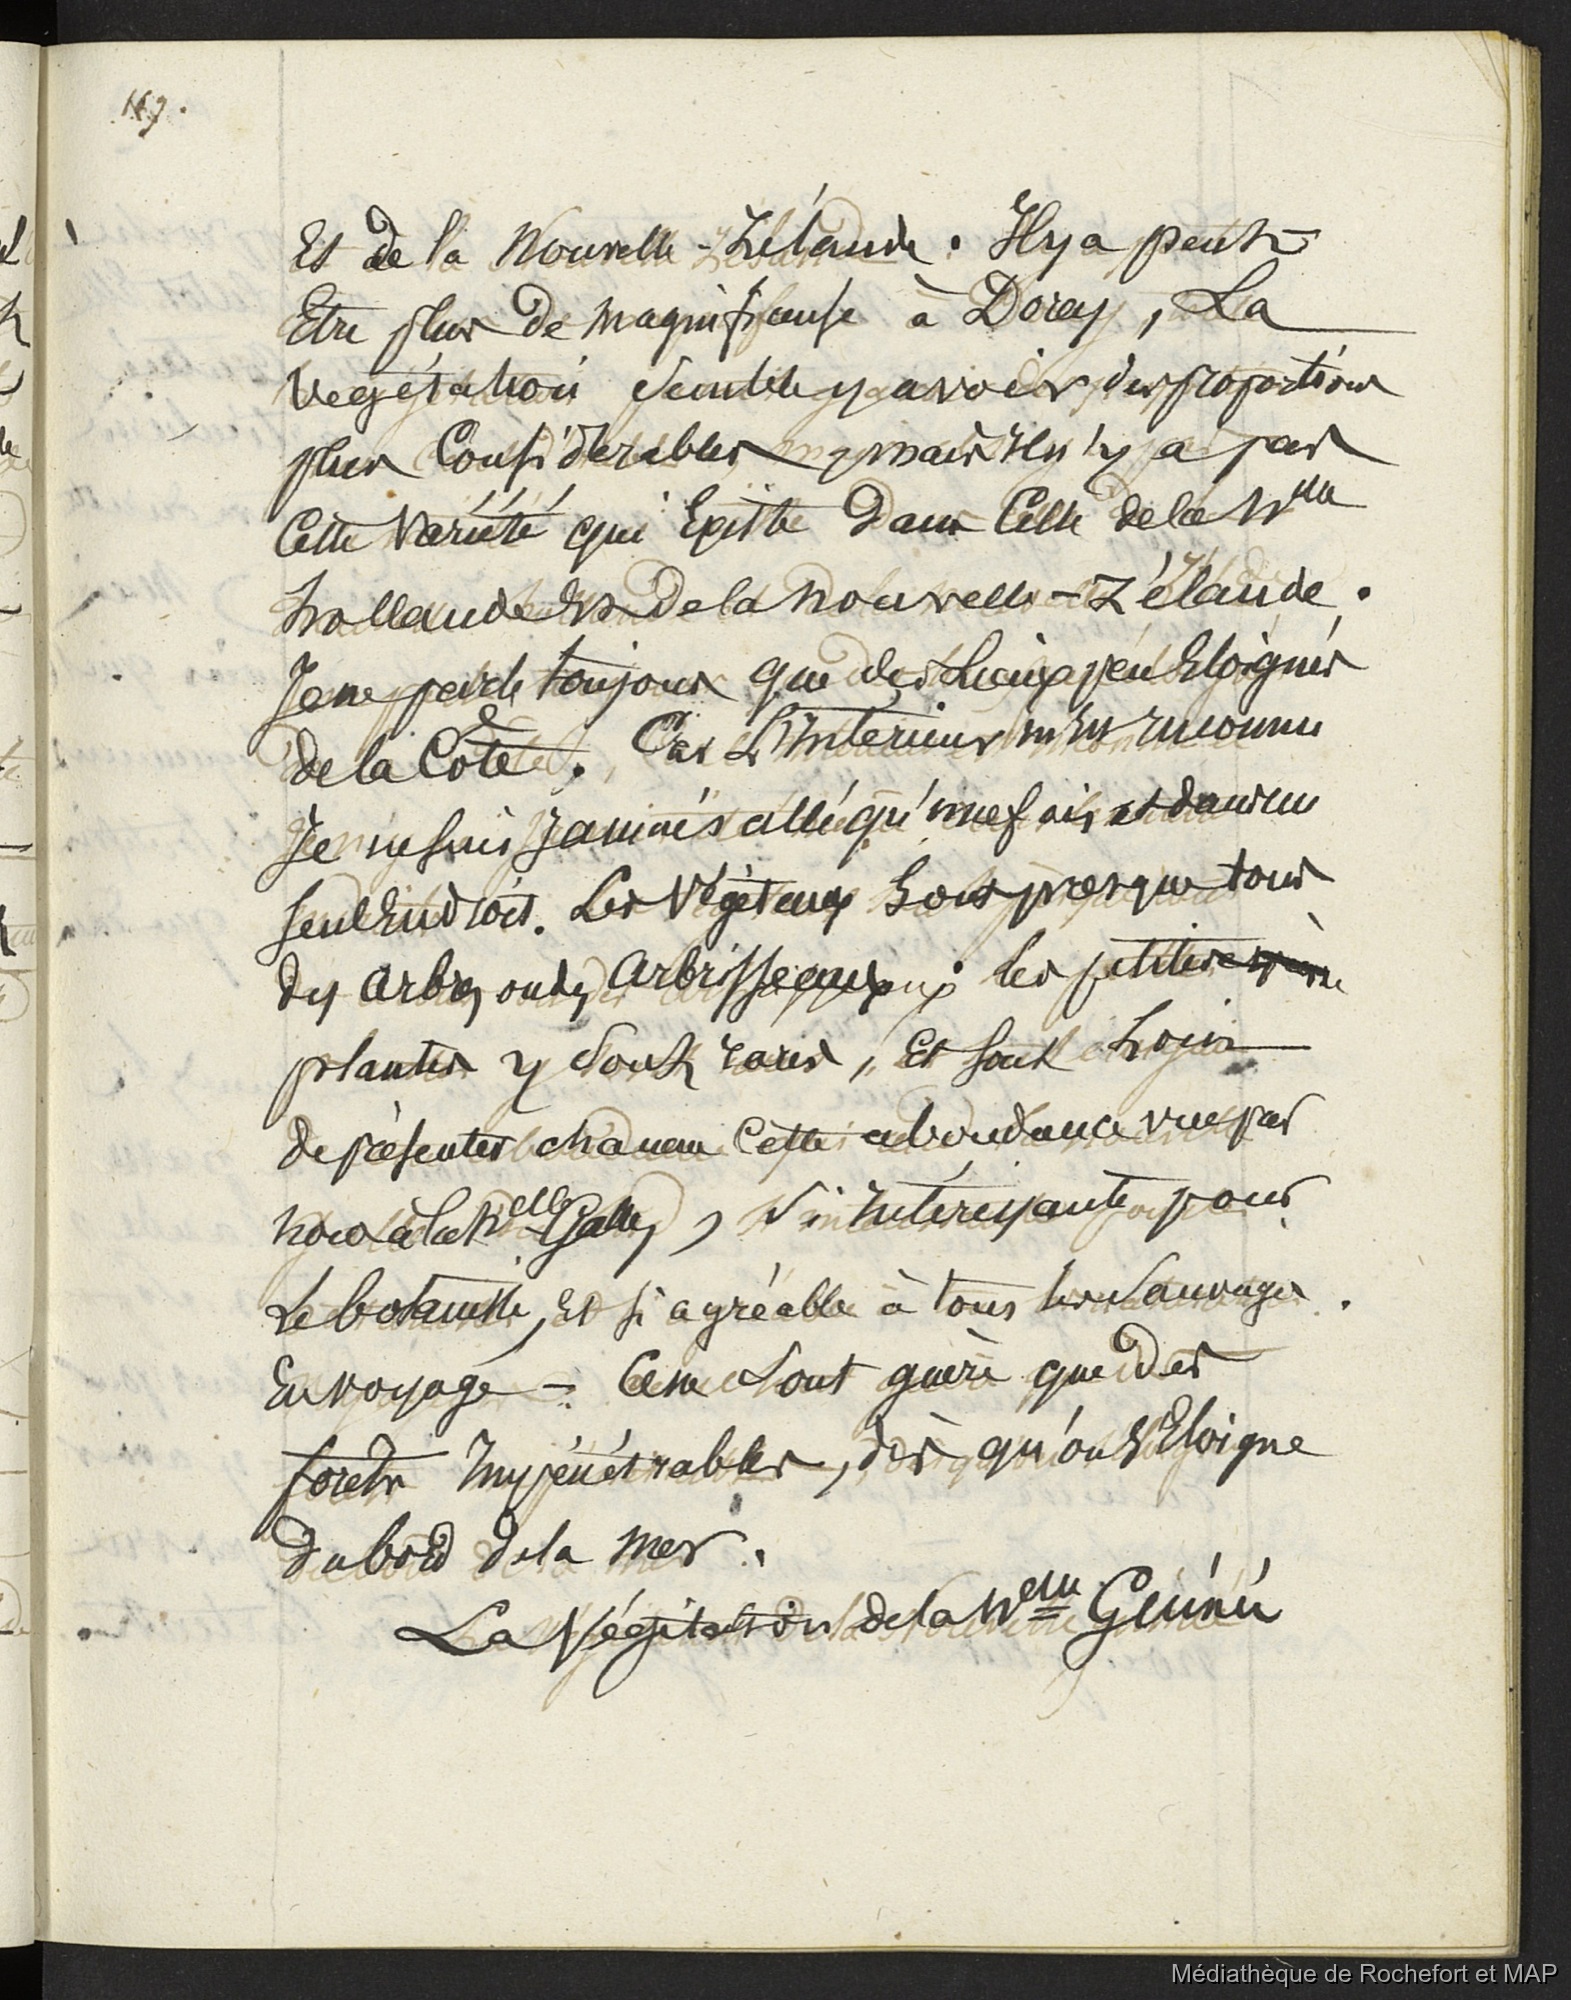 119.
Et de la Nouvelle-Zélande. Il y a peut
Etre plus de magnificense à Dorey, La
Végétation semble y avoir des proportions
plus Considérables, mais il n'y a pas
Cette Variété qui Existe Dans Celle de la Nlle
hollande Et De la Nouvelle-Zélande.
Je ne parle toujours que des Lieux peu Eloignés
de la Côte. Car L'Interieur m'est inconnu
Je ne suis Jamais allé qu'une fois et dans un
seul Endroit. Les Végétaux sont presque tous
des arbres ou des arbrisseaux; les petites
plantes y sont rares, Et sont Loin
de présenter cette abondance vue par
nous à la Nlle Galles, si intéressante pour
Le botaniste, Et si agréable à tous les Sauvages.
En voyage - Ce ne sont guère que Des
forets Impénétrables, dès qu'on s'Eloigne
Du bord de la Mer.
La Végétation de la Nelle Guinée
Médiathèque de Rochefort et MAP